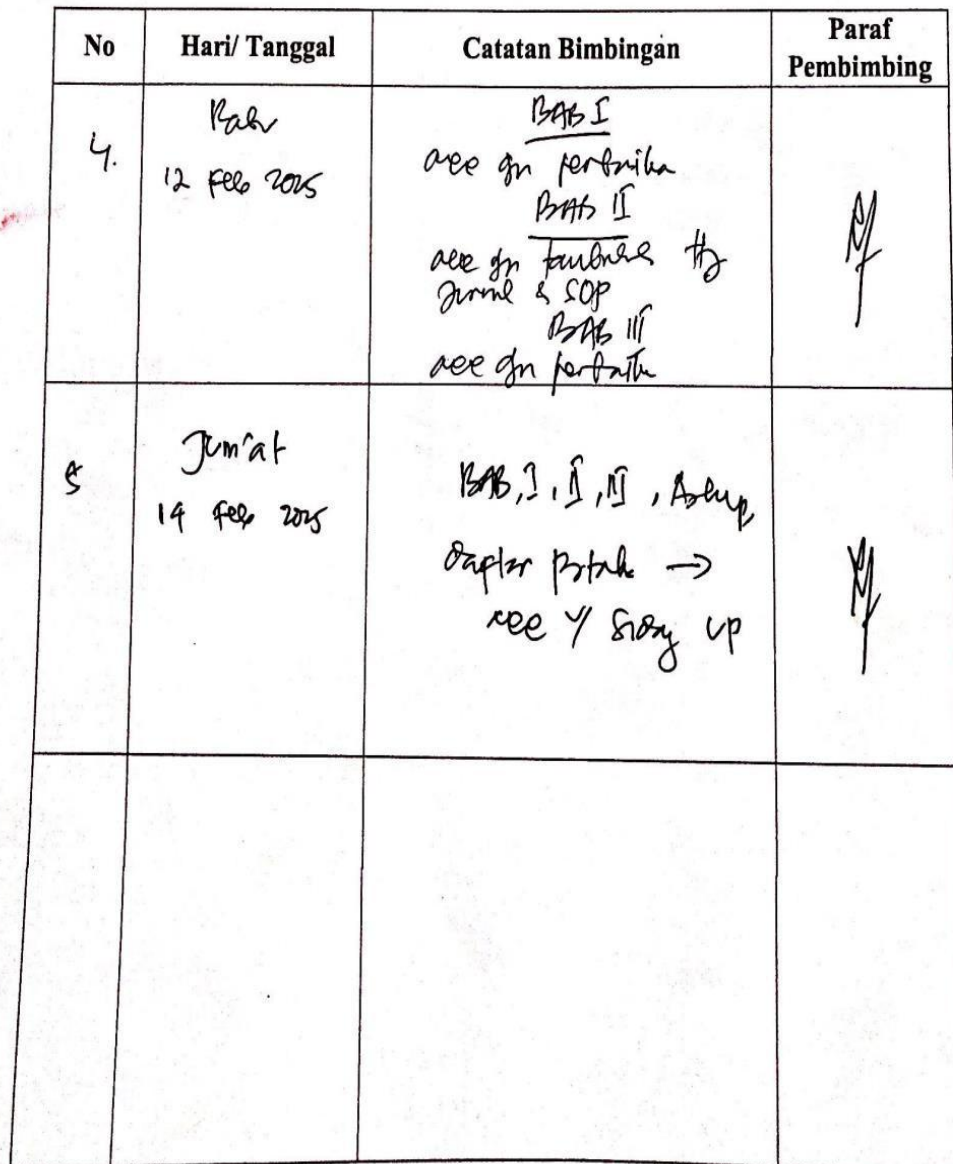 No Hari/ Tanggal Catatan Bimbingan Paraf Pembimbing
4. Rabu
12 Feb 2025
BAB I
acc dn perbaikan
BAB II
acc dn
Jurnal & SOP
BAB III
acc dn perbaikan
5 Jum'at
14 Feb 2025
BAB, I, II, III, Askep,
daftar pustaka →
acc u/ sidang UP